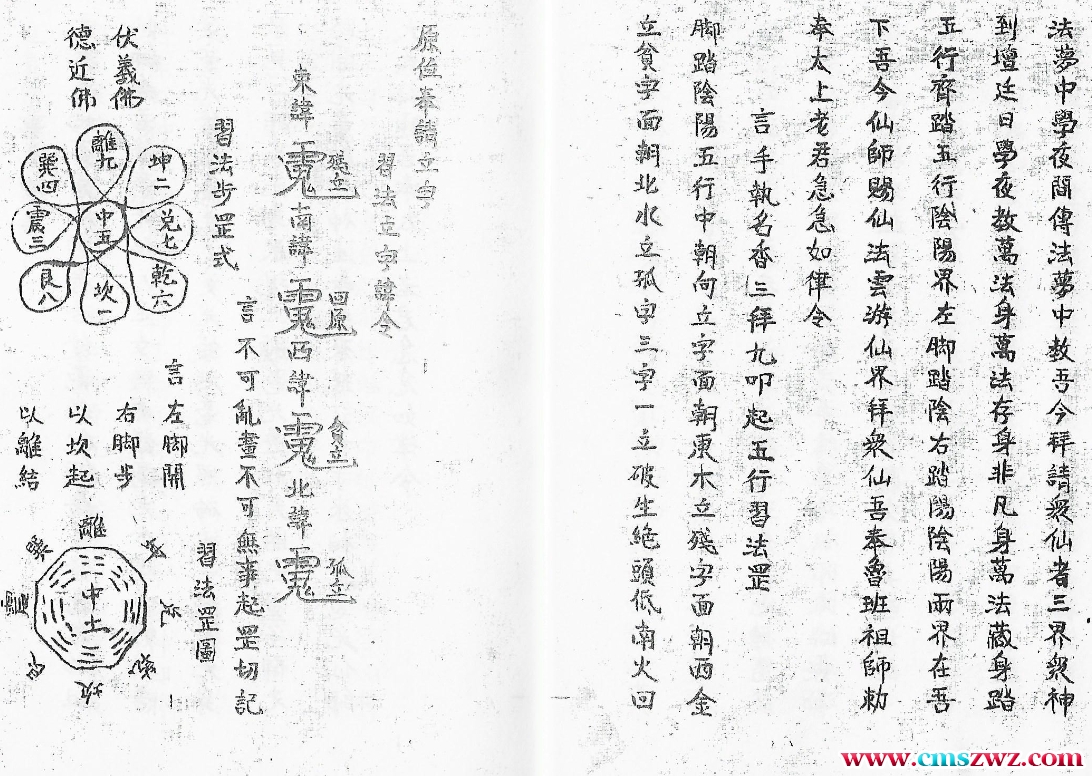 法夢中學夜間傳法夢中教吾今拜請衆仙者三界衆神
到壇廷日學夜教萬法身萬法存身非凡身萬法藏身踏
五行齊踏五行陰陽界左脚踏陰右踏陽陰陽兩界在吾
下吾今仙師賜仙法雲游仙界拜衆仙吾奉魯班祖師勅
奉太上老君急急如律令
言手執名香三拜九叩起五行習法罡
脚踏陰陽五行中朝向立字面朝東木立殘字面朝西金
立貧字面朝北水立孤字三字一立破生絶頭低南火回
原位奉請立字
習法立字諱令
東諱 殘立
南諱 回原
西諱 貪立
北諱 孤立
言不可亂畫不可無事起罡切記
習法步罡式
伏義佛
德近佛
巽四 離九 坤二
震三 中五 兌七
艮八 坎一 乾六
習法罡圖
言左脚開
右脚步
以坎起
以離結
離
中土
坎
www.cmszwz.com